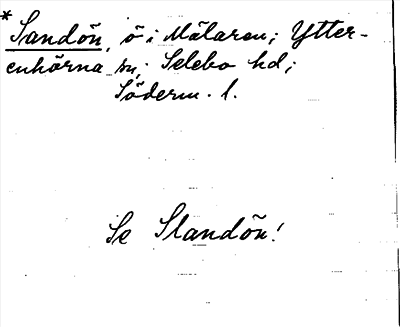 *Sandön, ö i Mälaren; Ytter-
enhörna sn; Selebo hd;
Söderm. l.
Se Slandön!